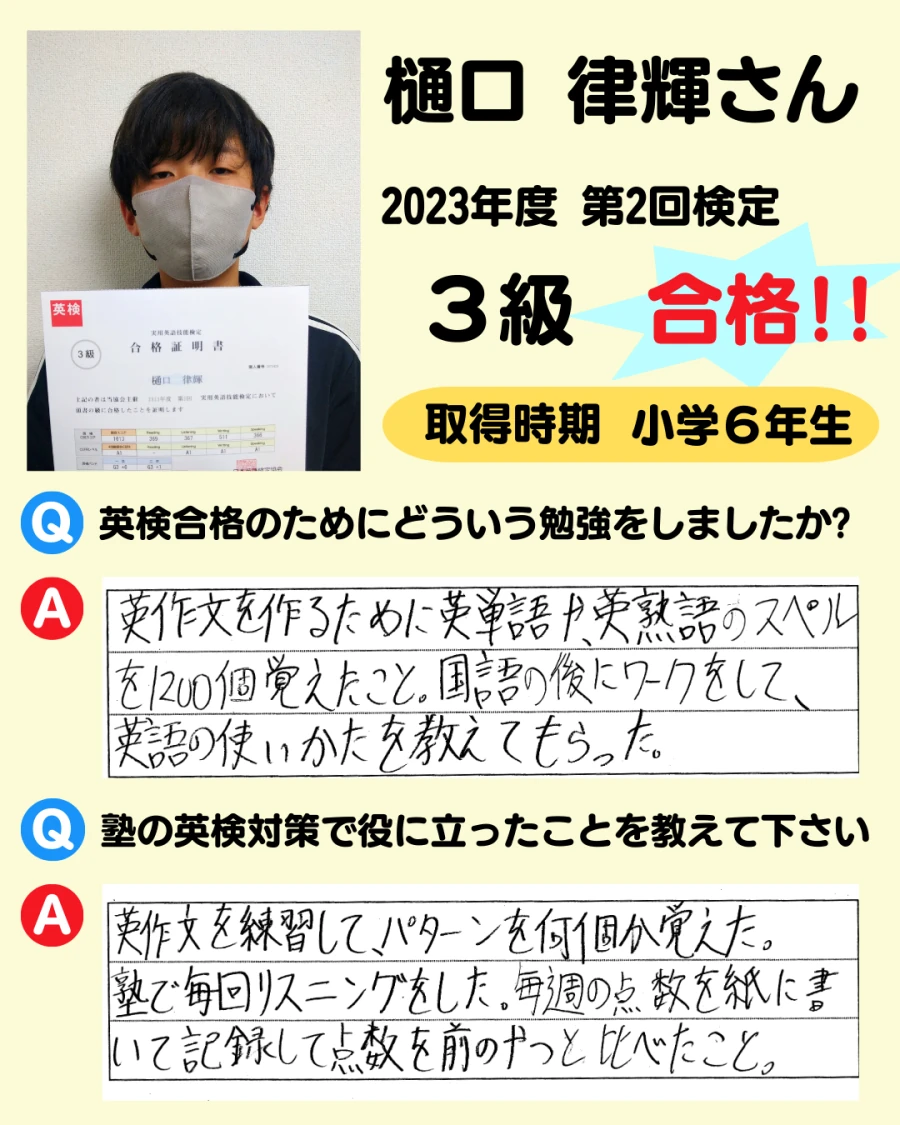 樋口 律輝さん
2023年度 第2回検定
3級 合格!!
取得時期 小学6年生
英検
実用英語技能検定
3級
合格証明書
樋口 律輝
上記の者は当協会主催 2023年度 第2回 実用英語技能検定において
頭書の級に合格したことを証明します
Q 英検合格のためにどういう勉強をしましたか?
A
英作文を作るために英単語や、英熟語のスペル
を1200個覚えたこと。国語の後にワークをして、
英語の使いかたを教えてもらった。
Q 塾の英検対策で役に立ったことを教えて下さい
A
英作文を練習して、パターンを何個か覚えた。
塾で毎回リスニングをした。毎週の点数を紙に書
いて記録して点数を前のやつと比べたこと。